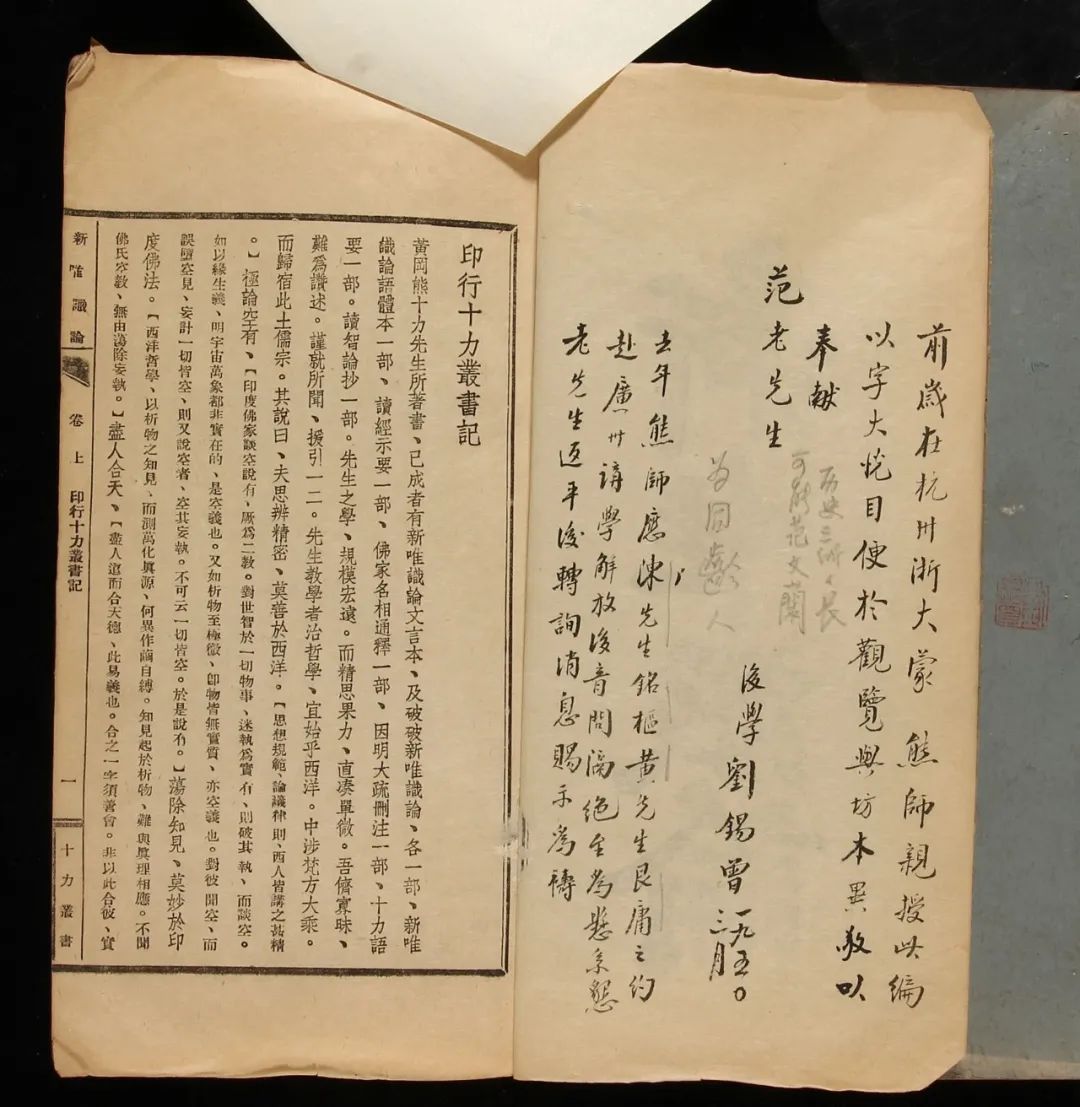 前歲在杭州浙大蒙熊師親授此編
以字大悅目便於觀覽與坊本異敬以
奉献
范老先生
後學劉錫曾
一九五〇
三月
去年熊師應陳先生銘樞黃先生艮庸之約
赴廣州講學解放後音問隔絕至為懸系懇
老先生返平後轉詢消息賜示為禱
历史三所所長
可能范文闌
為同
人
印行十力叢書記
黃岡熊十力先生所著書、已成者有新唯識論文言本、及破破新唯識論、各一部、新唯
識論語體本一部、讀經示要一部、佛家名相通釋一部、因明大疏刪注一部、十力語
要一部。讀智論抄一部。先生之學、規模宏遠。而精思果力、直湊單微。吾儕寡昧、
難爲讚述。謹就所聞、援引一二。先生教學者治哲學、宜始乎西洋。中涉梵方大乘。
而歸宿此土儒宗。其說曰、夫思辨精密、莫善於西洋。【思想規範、論議律則、西人皆講之甚精
。】極論空有、【印度佛家談空說有、厥爲二敎。對世智於一切物事、迷執爲實有、則破其執、而談空。
如以緣生義、明宇宙萬象都非實在的、是空義也。又如析物至極微、卽物皆無實質、亦空義也。對彼聞空、而
誤墮空見、妄計一切皆空、則又說空者、空其妄執。不可云一切皆空。於是說有。】蕩除知見、莫妙於印
度佛法。【西洋哲學、以析物之知見、而測萬化眞源、何異作繭自縛。知見起於析物、難與眞理相應。不聞
佛氏空敎、無由蕩除妄執。】盡人合天、【盡人道而合天德、此易義也。合之一字須善會。非以此合彼、實
新唯識論
卷上
印行十力叢書記
一
十力叢書